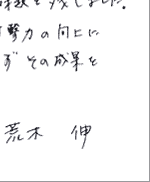 を残しました。
撃力の向上に
ず その成果を
荒木 伸